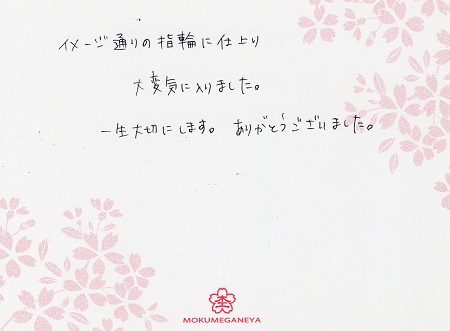 イメージ通りの指輪に仕上り
大変気に入りました。
一生大切にします。ありがとうございました。
MOKUMEGANEYA